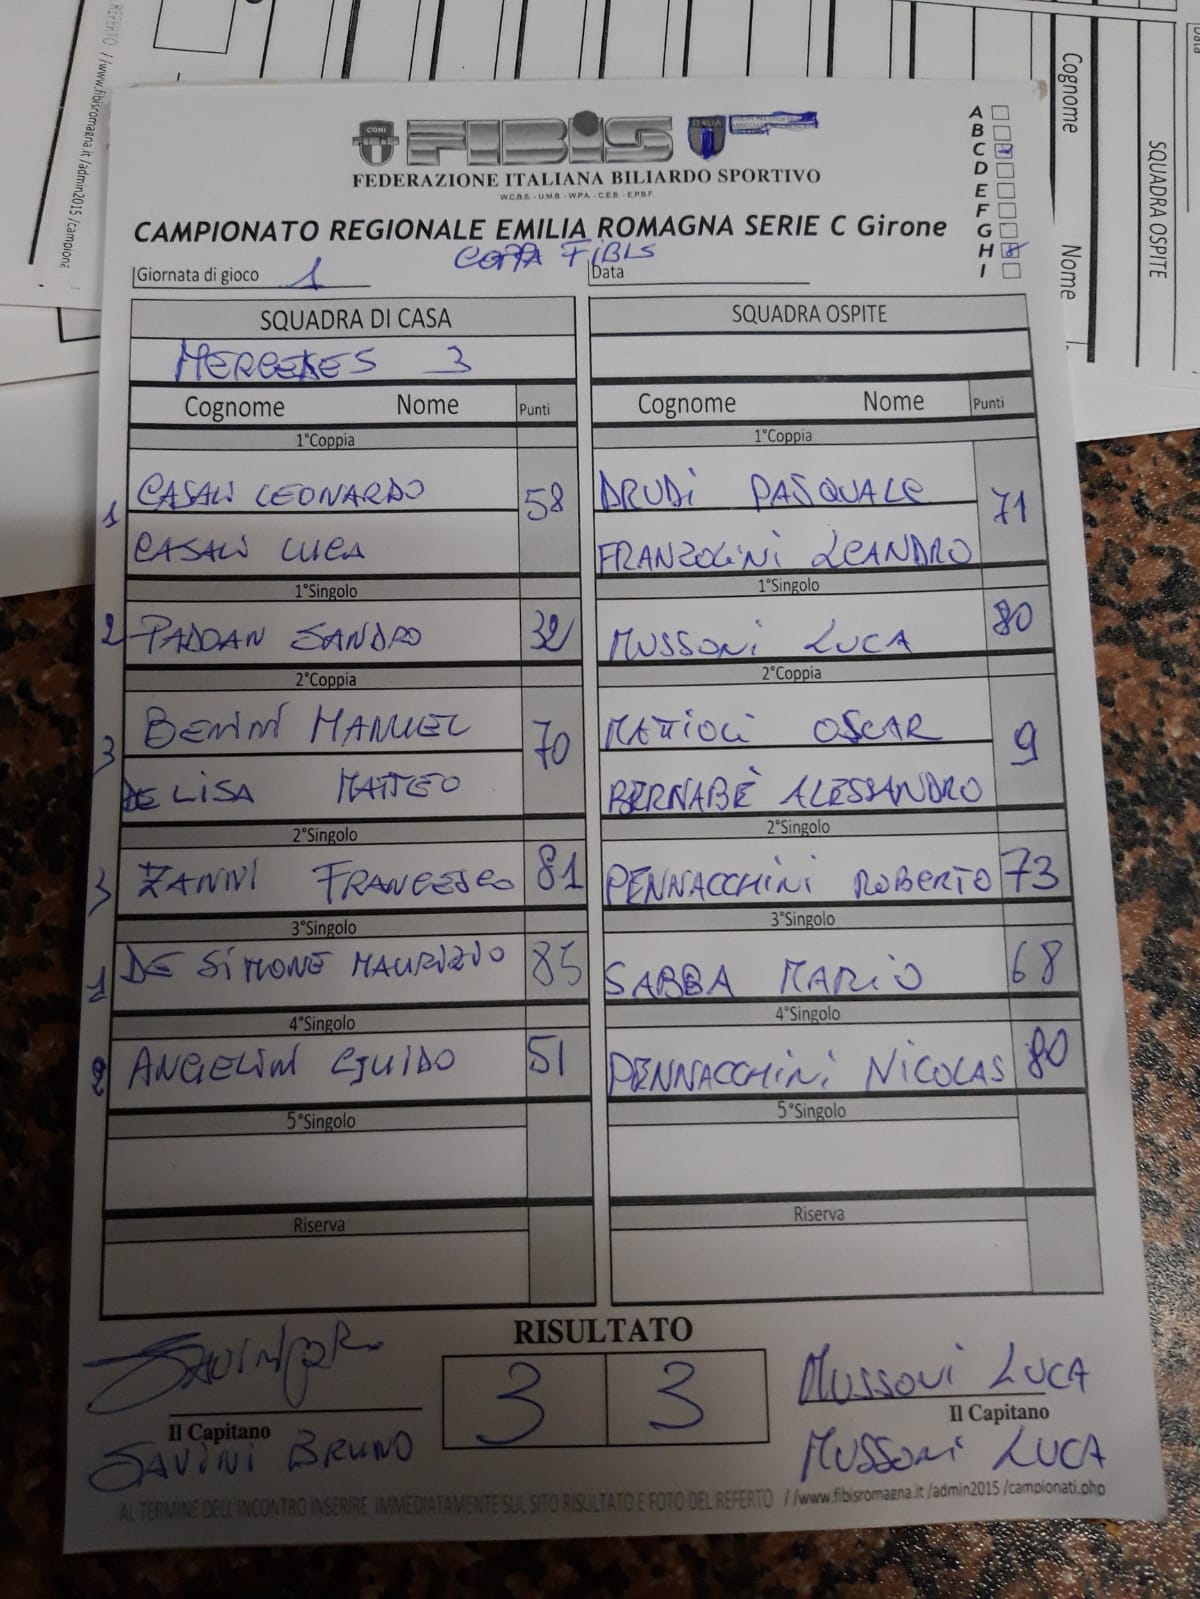 CONI FIBIS ITALIA
FEDERAZIONE ITALIANA BILIARDO SPORTIVO
W.C.B.S - U.M.B - W.P.A - C.E.B - E.P.B.F
A
B
C
D
E
F
G
H
I
CAMPIONATO REGIONALE EMILIA ROMAGNA SERIE C Girone
COPPA FIBIS
Giornata di gioco 1 Data
SQUADRA DI CASA SQUADRA OSPITE
MERCEDES 3
Cognome Nome Punti Cognome Nome Punti
1°Coppia 1°Coppia
1 CASALI LEONARDO 58 DRUDI PASQUALE 71
CASALI LUCA FRANZOLINI LEANDRO
1°Singolo 1°Singolo
2 PADOAN SANDRO 32 MUSSONI LUCA 80
2°Coppia 2°Coppia
3 BENINI MANUEL 70 MATTIOLI OSCAR 9
DE LISA MATTEO BERNABÈ ALESSANDRO
2°Singolo 2°Singolo
3 ZANNI FRANCESCO 81 PENNACCHINI ROBERTO 73
3°Singolo 3°Singolo
1 DE SIMONE MAURIZIO 85 SABBA MARIO 68
4°Singolo 4°Singolo
2 ANGELINI GUIDO 51 PENNACCHINI NICOLAS 80
5°Singolo 5°Singolo
Riserva Riserva
RISULTATO
3 3
MUSSONI LUCA
Il Capitano Il Capitano
SAVINI BRUNO MUSSONI LUCA
AL TERMINE DELL'INCONTRO INSERIRE IMMEDIATAMENTE SUL SITO RISULTATO E FOTO DEL REFERTO //www.fibisromagna.it /admin2015 /campionati.php
REFERTO //www.fibisromagna.it /admin2015 /campiona
Cognome Nome
SQUADRA OSPITE
Data